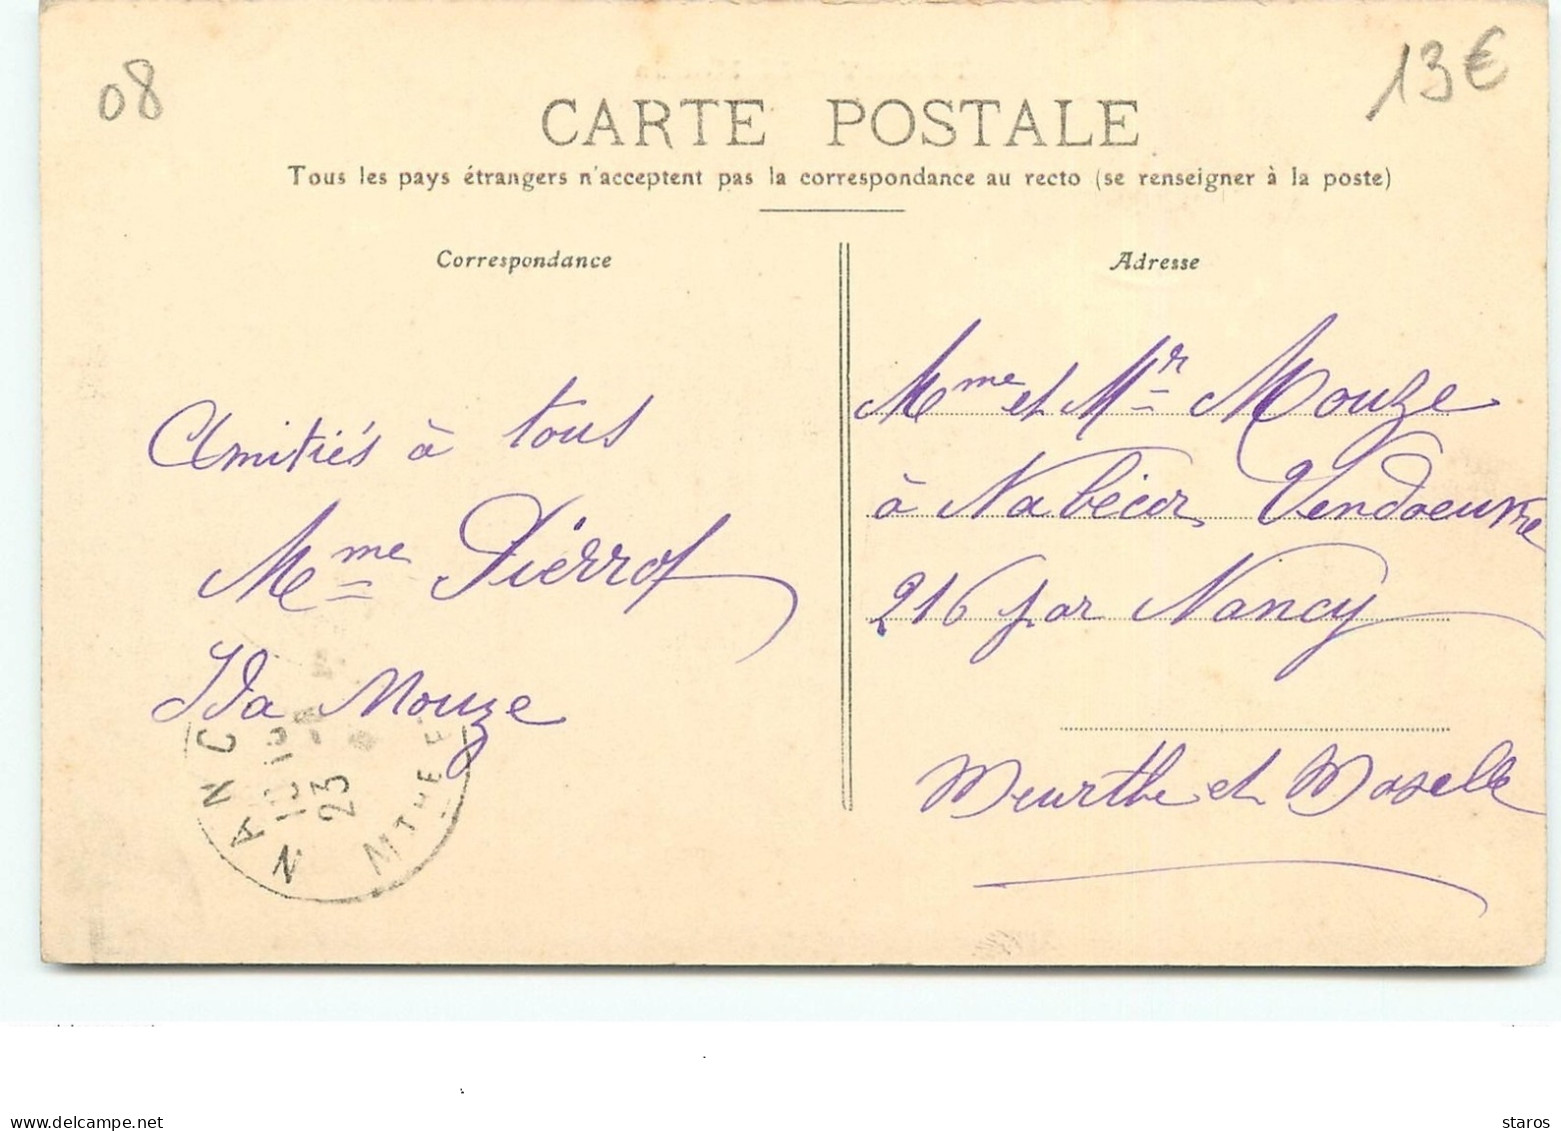 08
13€
CARTE POSTALE
Tous les pays étrangers n'acceptent pas la correspondance au recto (se renseigner à la poste)
Correspondance
Amitiés à tous
Mme Pierrot
Ida Mouze
NANC
23
MTHE
Adresse
Mme et Mr Mouze
à Nabécor Vendoeuvre
216 par Nancy
Meurthe et Moselle
www.delcampe.net
staros